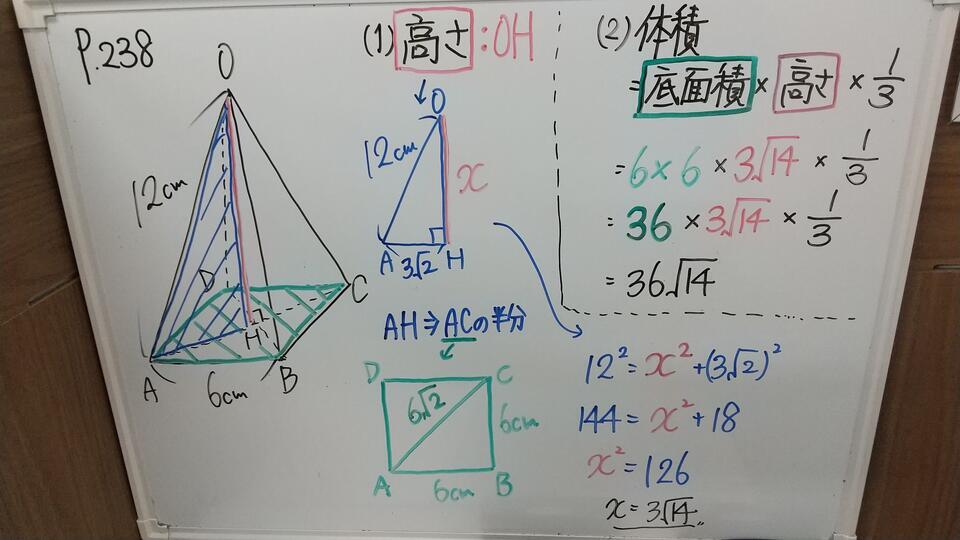 P.238
O
12cm
D
C
H
A
6cm
B
(1) 高さ:OH
O
12cm
x
A
3√2
H
AH⇒ACの半分
D
C
6√2
6cm
A
6cm
B
(2) 体積
=底面積×高さ×1/3
=6×6×3√14×1/3
=36×3√14×1/3
=36√14
12²=x²+(3√2)²
144=x²+18
x²=126
x=3√14